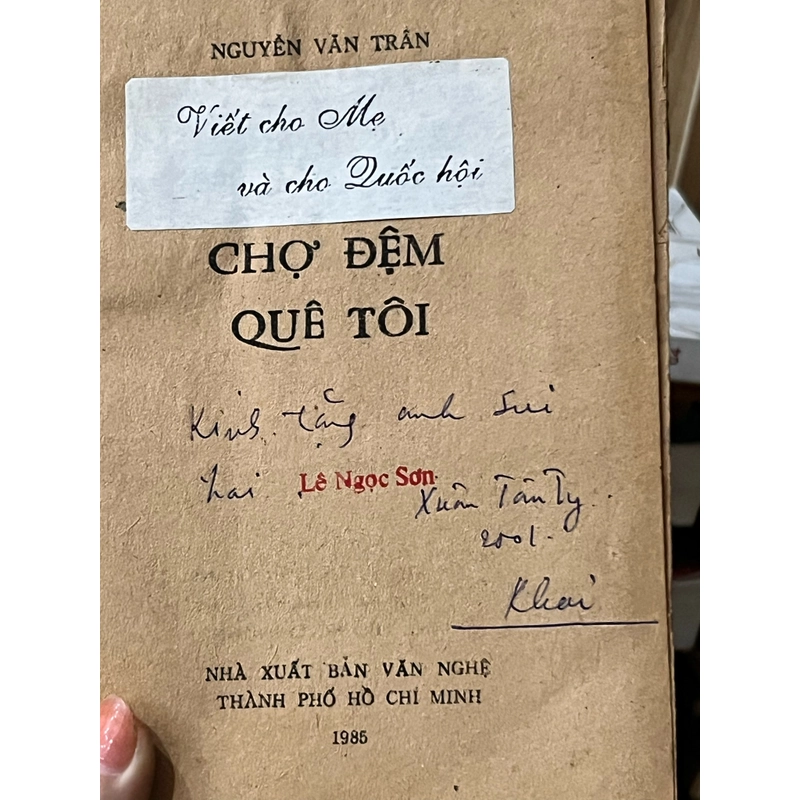 NGUYỄN VĂN TRẤN
Viết cho Mẹ
và cho Quốc hội
CHỢ ĐỆM
QUÊ TÔI
Kính tặng anh Sui
hai.
Lê Ngọc Sơn
Xuân Tân Tỵ
2001.
Khai
NHÀ XUẤT BẢN VĂN NGHỆ
THÀNH PHỐ HỒ CHÍ MINH
1985